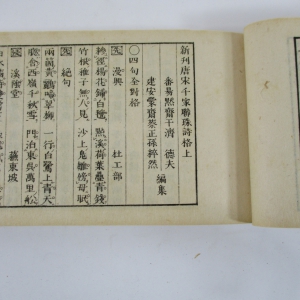 新刊唐宋千家聯珠詩格上
番易黙齋于濟 德夫
建安蒙齋蔡正孫粹然 編集
○四句全對格
漫興 杜工部
糝徑楊花鋪白氊點溪荷葉疊青錢
竹根稚子無人見沙上鳧雛傍母眠
絶句
兩箇黃鸝鳴翠柳一行白鷺上青天
牕含西嶺千秋雪門泊東吳萬里船
溪陰堂 蘇東坡